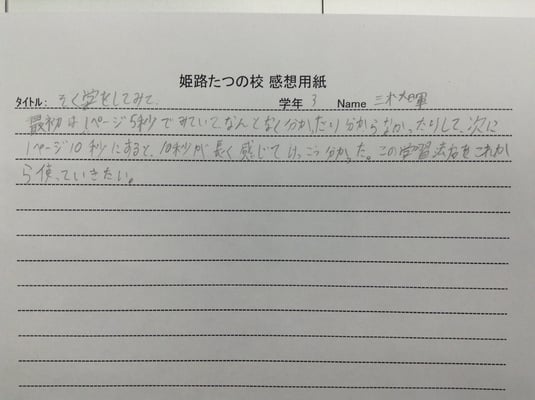 姫路たつの校 感想用紙
タイトル: そく学をしてみて. 学年 3 Name 三木大暉
最初は1ページ5秒でみていて、なんとなく分かったり分からなかったりして、次に
1ページ10秒にすると、10秒が長く感じてけっこう分かった。この学習法をこれか
ら使っていきたい。